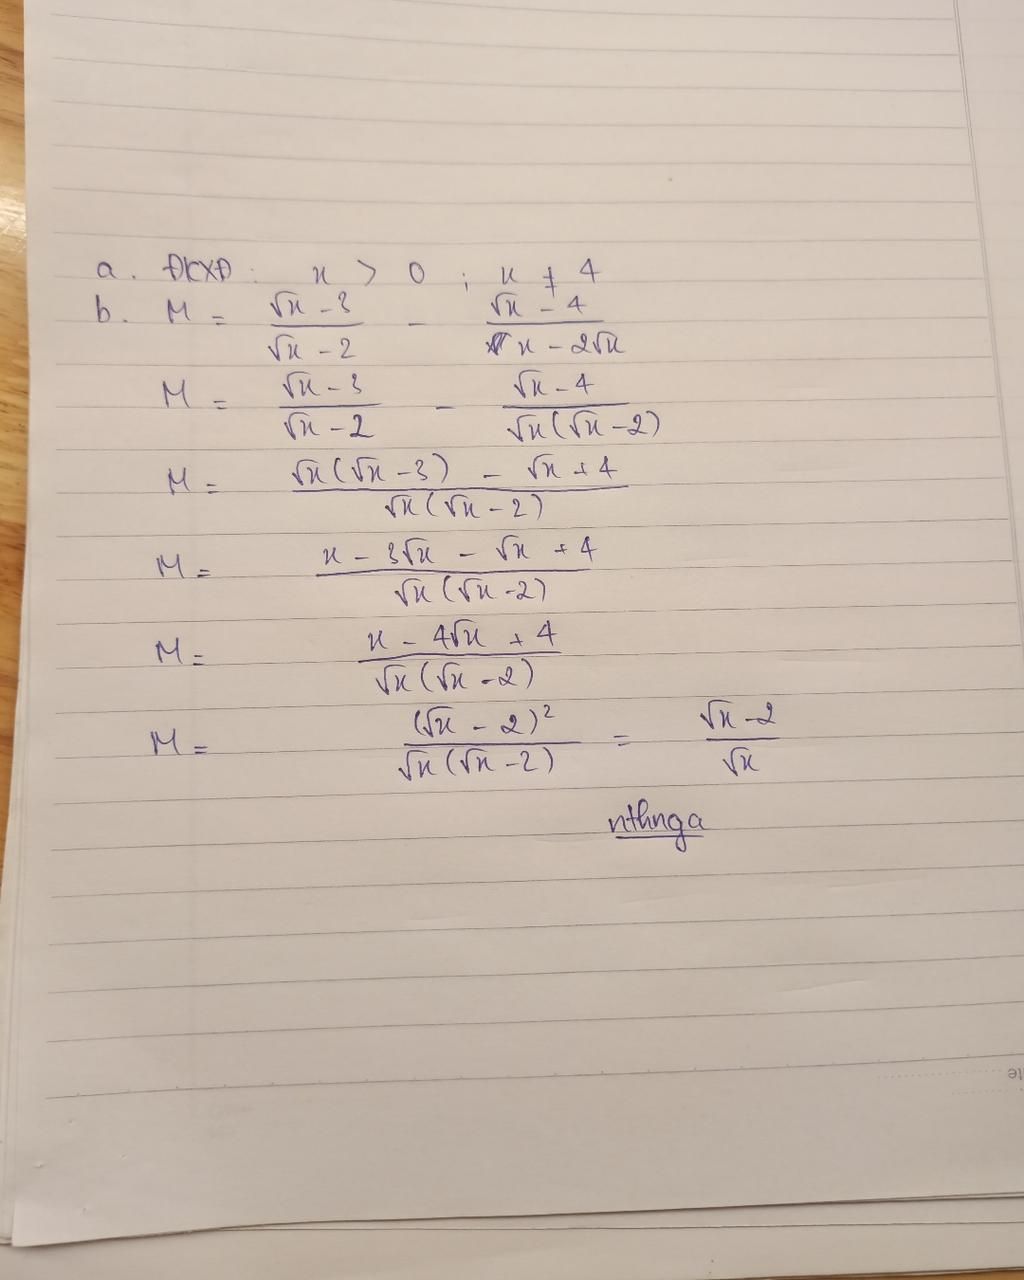 a. ĐKXĐ: x > 0 ; x ≠ 4
b. M = (√x - 3)/(√x - 2) - (√x - 4)/(x - 2√x)
M = (√x - 3)/(√x - 2) - (√x - 4)/(√x(√x - 2))
M = (√x(√x - 3) - √x + 4)/(√x(√x - 2))
M = (x - 3√x - √x + 4)/(√x(√x - 2))
M = (x - 4√x + 4)/(√x(√x - 2))
M = (√x - 2)²/(√x(√x - 2)) = (√x - 2)/√x
nthnga